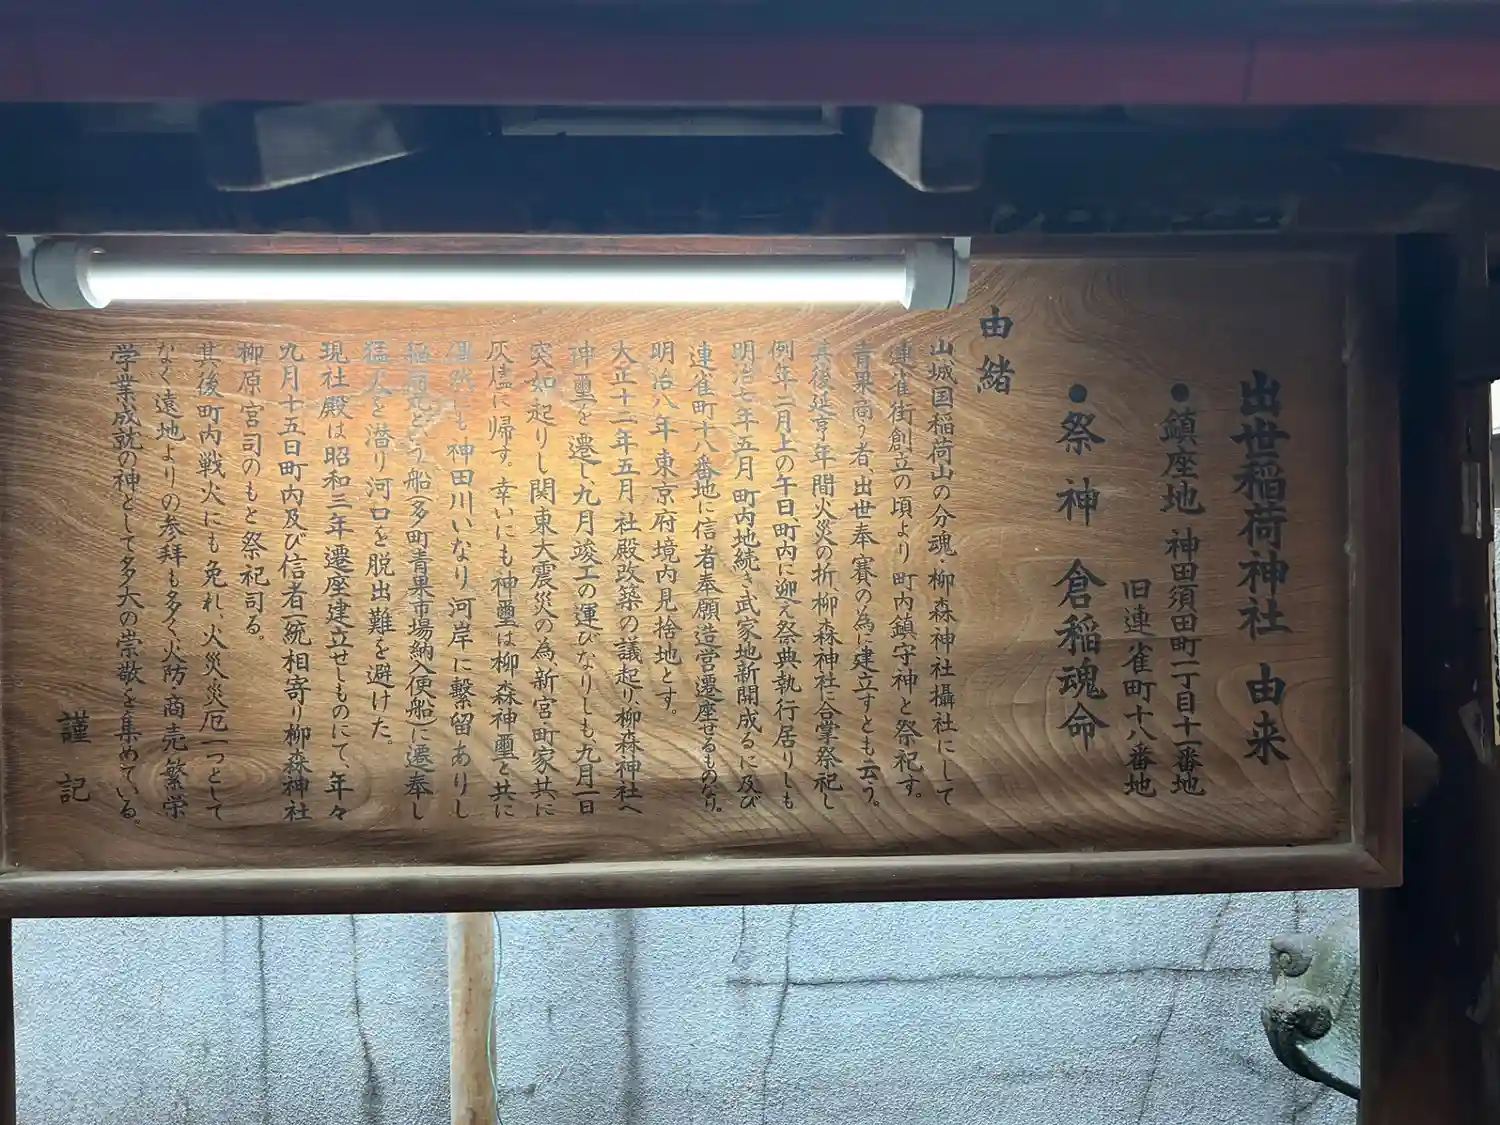 出世稲荷神社 由来
●鎮座地 神田須田町一丁目十一番地
旧連雀町十八番地
●祭神 倉稲魂命
由緒
山城国稲荷山の分魂・柳森神社攝社にして
連雀街創立の頃より町内鎮守神と祭祀す。
青果商う者、出世奉賽の為に建立すとも云う。
其後延享年間火災の折、柳森神社に合掌祭祀し
例年二月上の午日、町内に迎え祭典執行居りしも
明治七年五月町内地続き武家地新開成るに及び
連雀町十八番地に信者奉願造営遷座せるものなり。
明治八年東京府境内見捨地とす。
大正十二年五月社殿改築の議起り、柳森神社へ
神璽を遷し、九月竣工の運びなりしも九月一日
突如起りし関東大震災の為、新宮町家共に
灰燼に帰す。幸いにも神璽は柳森神璽と共に
偶然にも神田川いなり河岸に繋留ありし
稲荷丸という船(多町青果市場納入便船)に遷奉し
猛火を潜り河口を脱出難を避けた。
現社殿は昭和三年遷座建立せしものにて、年々
九月十五日町内及び信者一統相寄り柳森神社
柳原宮司のもと祭祀司る。
其後町内戦火にも免れ、火災災厄一つとして
なく遠地よりの参拝も多く火防、商売繁栄
学業成就の神として多大の崇敬を集めている。
謹記